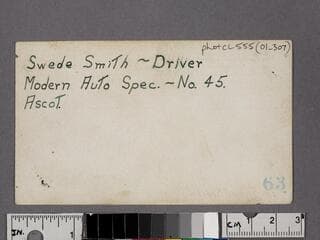 photCL 555 (01-307)
Swede Smith ~ Driver
Modern Auto Spec. ~ No. 45.
Ascot.
63
IN. 1 2
CM 1 2 3